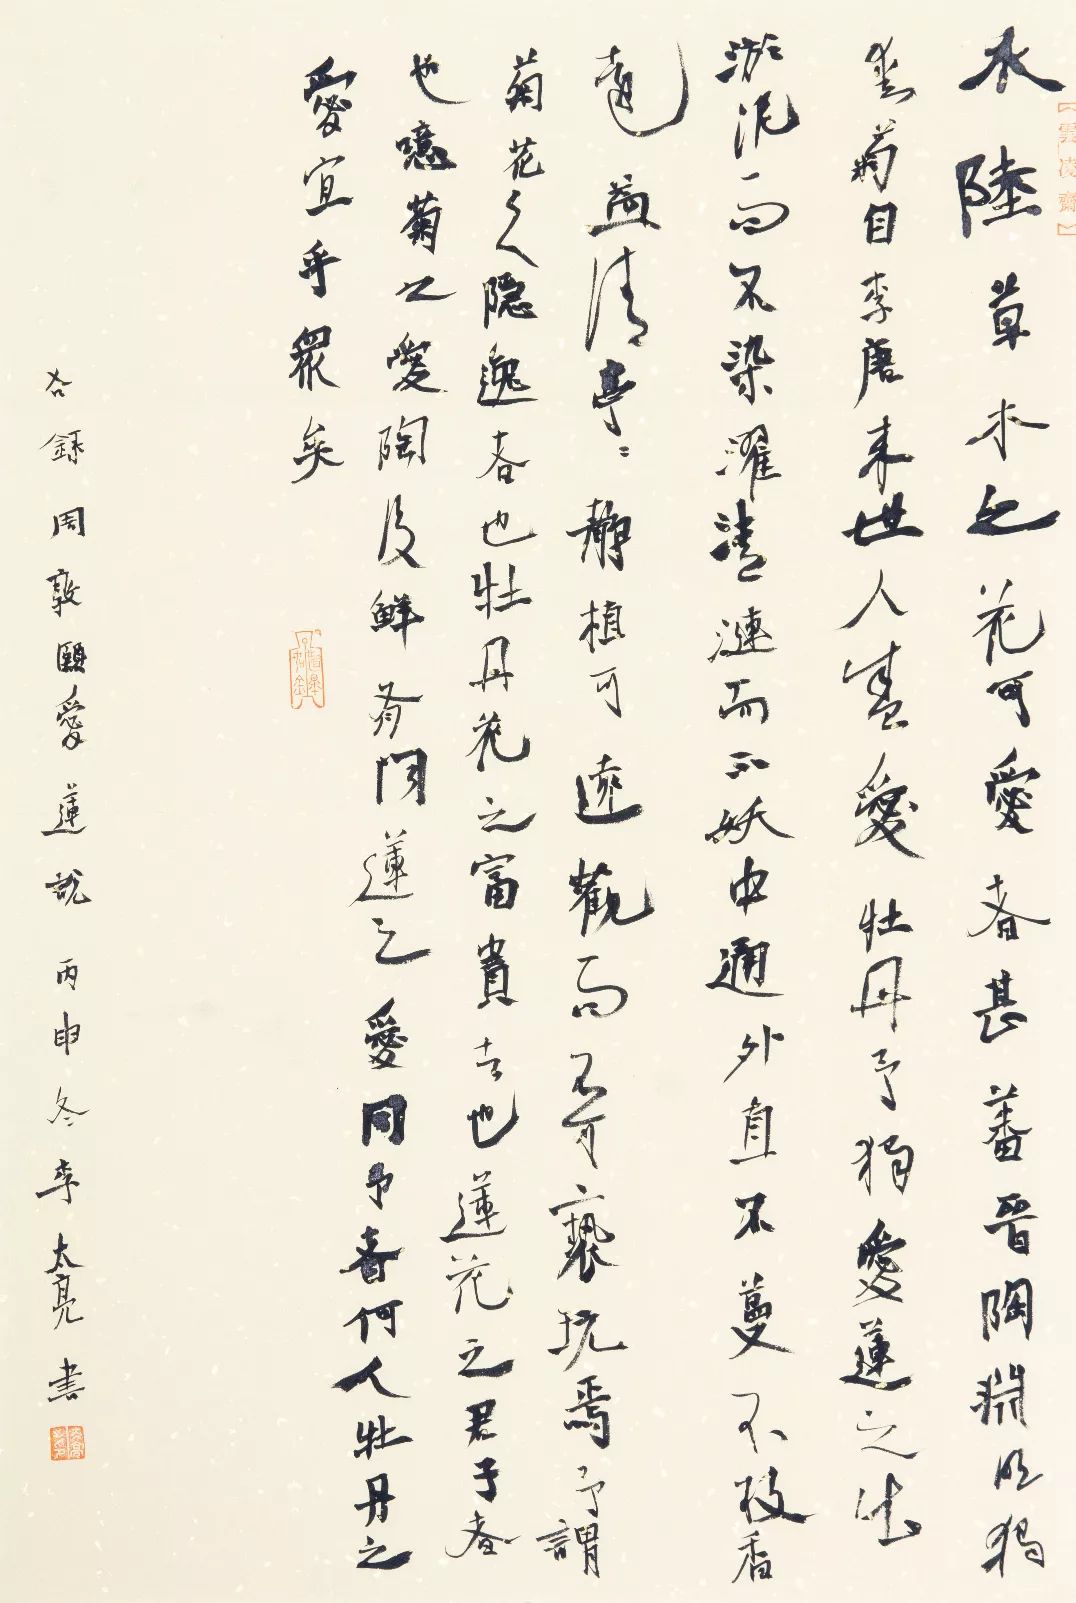 水陸草木之花可愛者甚蕃晉陶淵明獨
愛菊自李唐来世人盛愛牡丹予獨愛蓮之出
淤泥而不染濯清漣而不妖中通外直不蔓不枝香
遠益清亭〻静植可遠觀而不可褻玩焉予謂
菊花之隐逸者也牡丹花之富貴者也蓮花之君子者
也噫菊之愛陶後鮮有聞蓮之愛同予者何人牡丹之
愛宜乎衆矣
右録周敦頤愛蓮說 丙申冬李太亮書